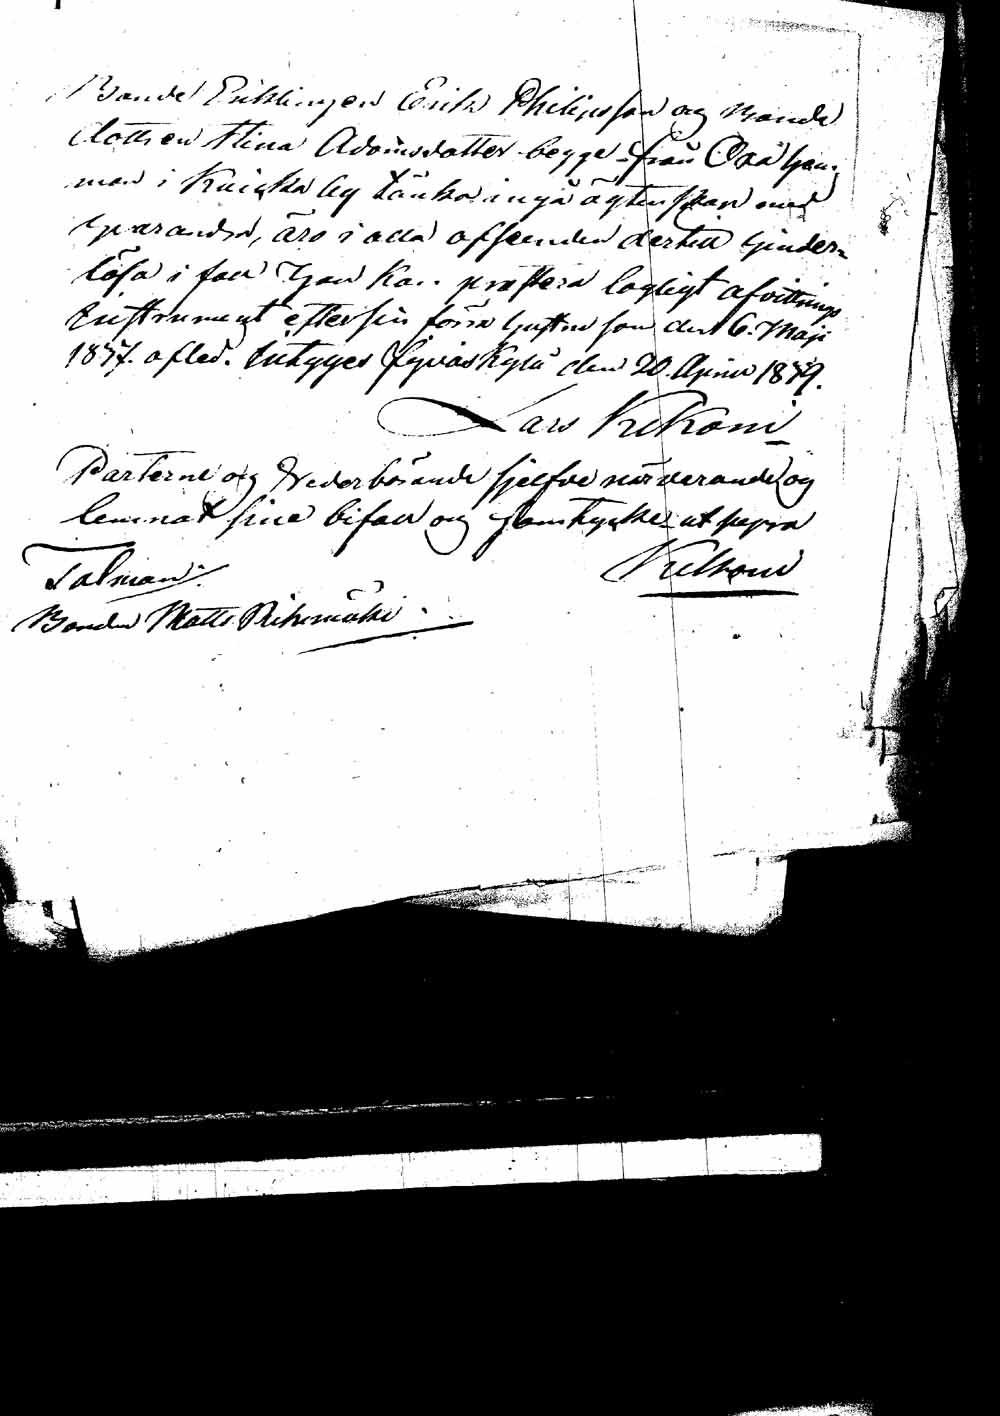 Bonde Enklingen Erik Philipsson og Bonde
dottren Stina Adamsdotter begge från
man i by tänka ingå ägtenskap med
hvarandra, äro i alla afseenden dertill hinder-
lösa i fall han kan præstera lagligt afvittrings
Instrument efter sin förra hustru som den 6. Maji
1877. afled. Intygges Jyväskylä den 20. April 1879.
Lars Kekoni
Parterne og Vederbörande sjelfve närvarande og
lemnat sine bifall og samtycke ut supra
Kekoni
Talman:
Bonden Matts Riihimäki